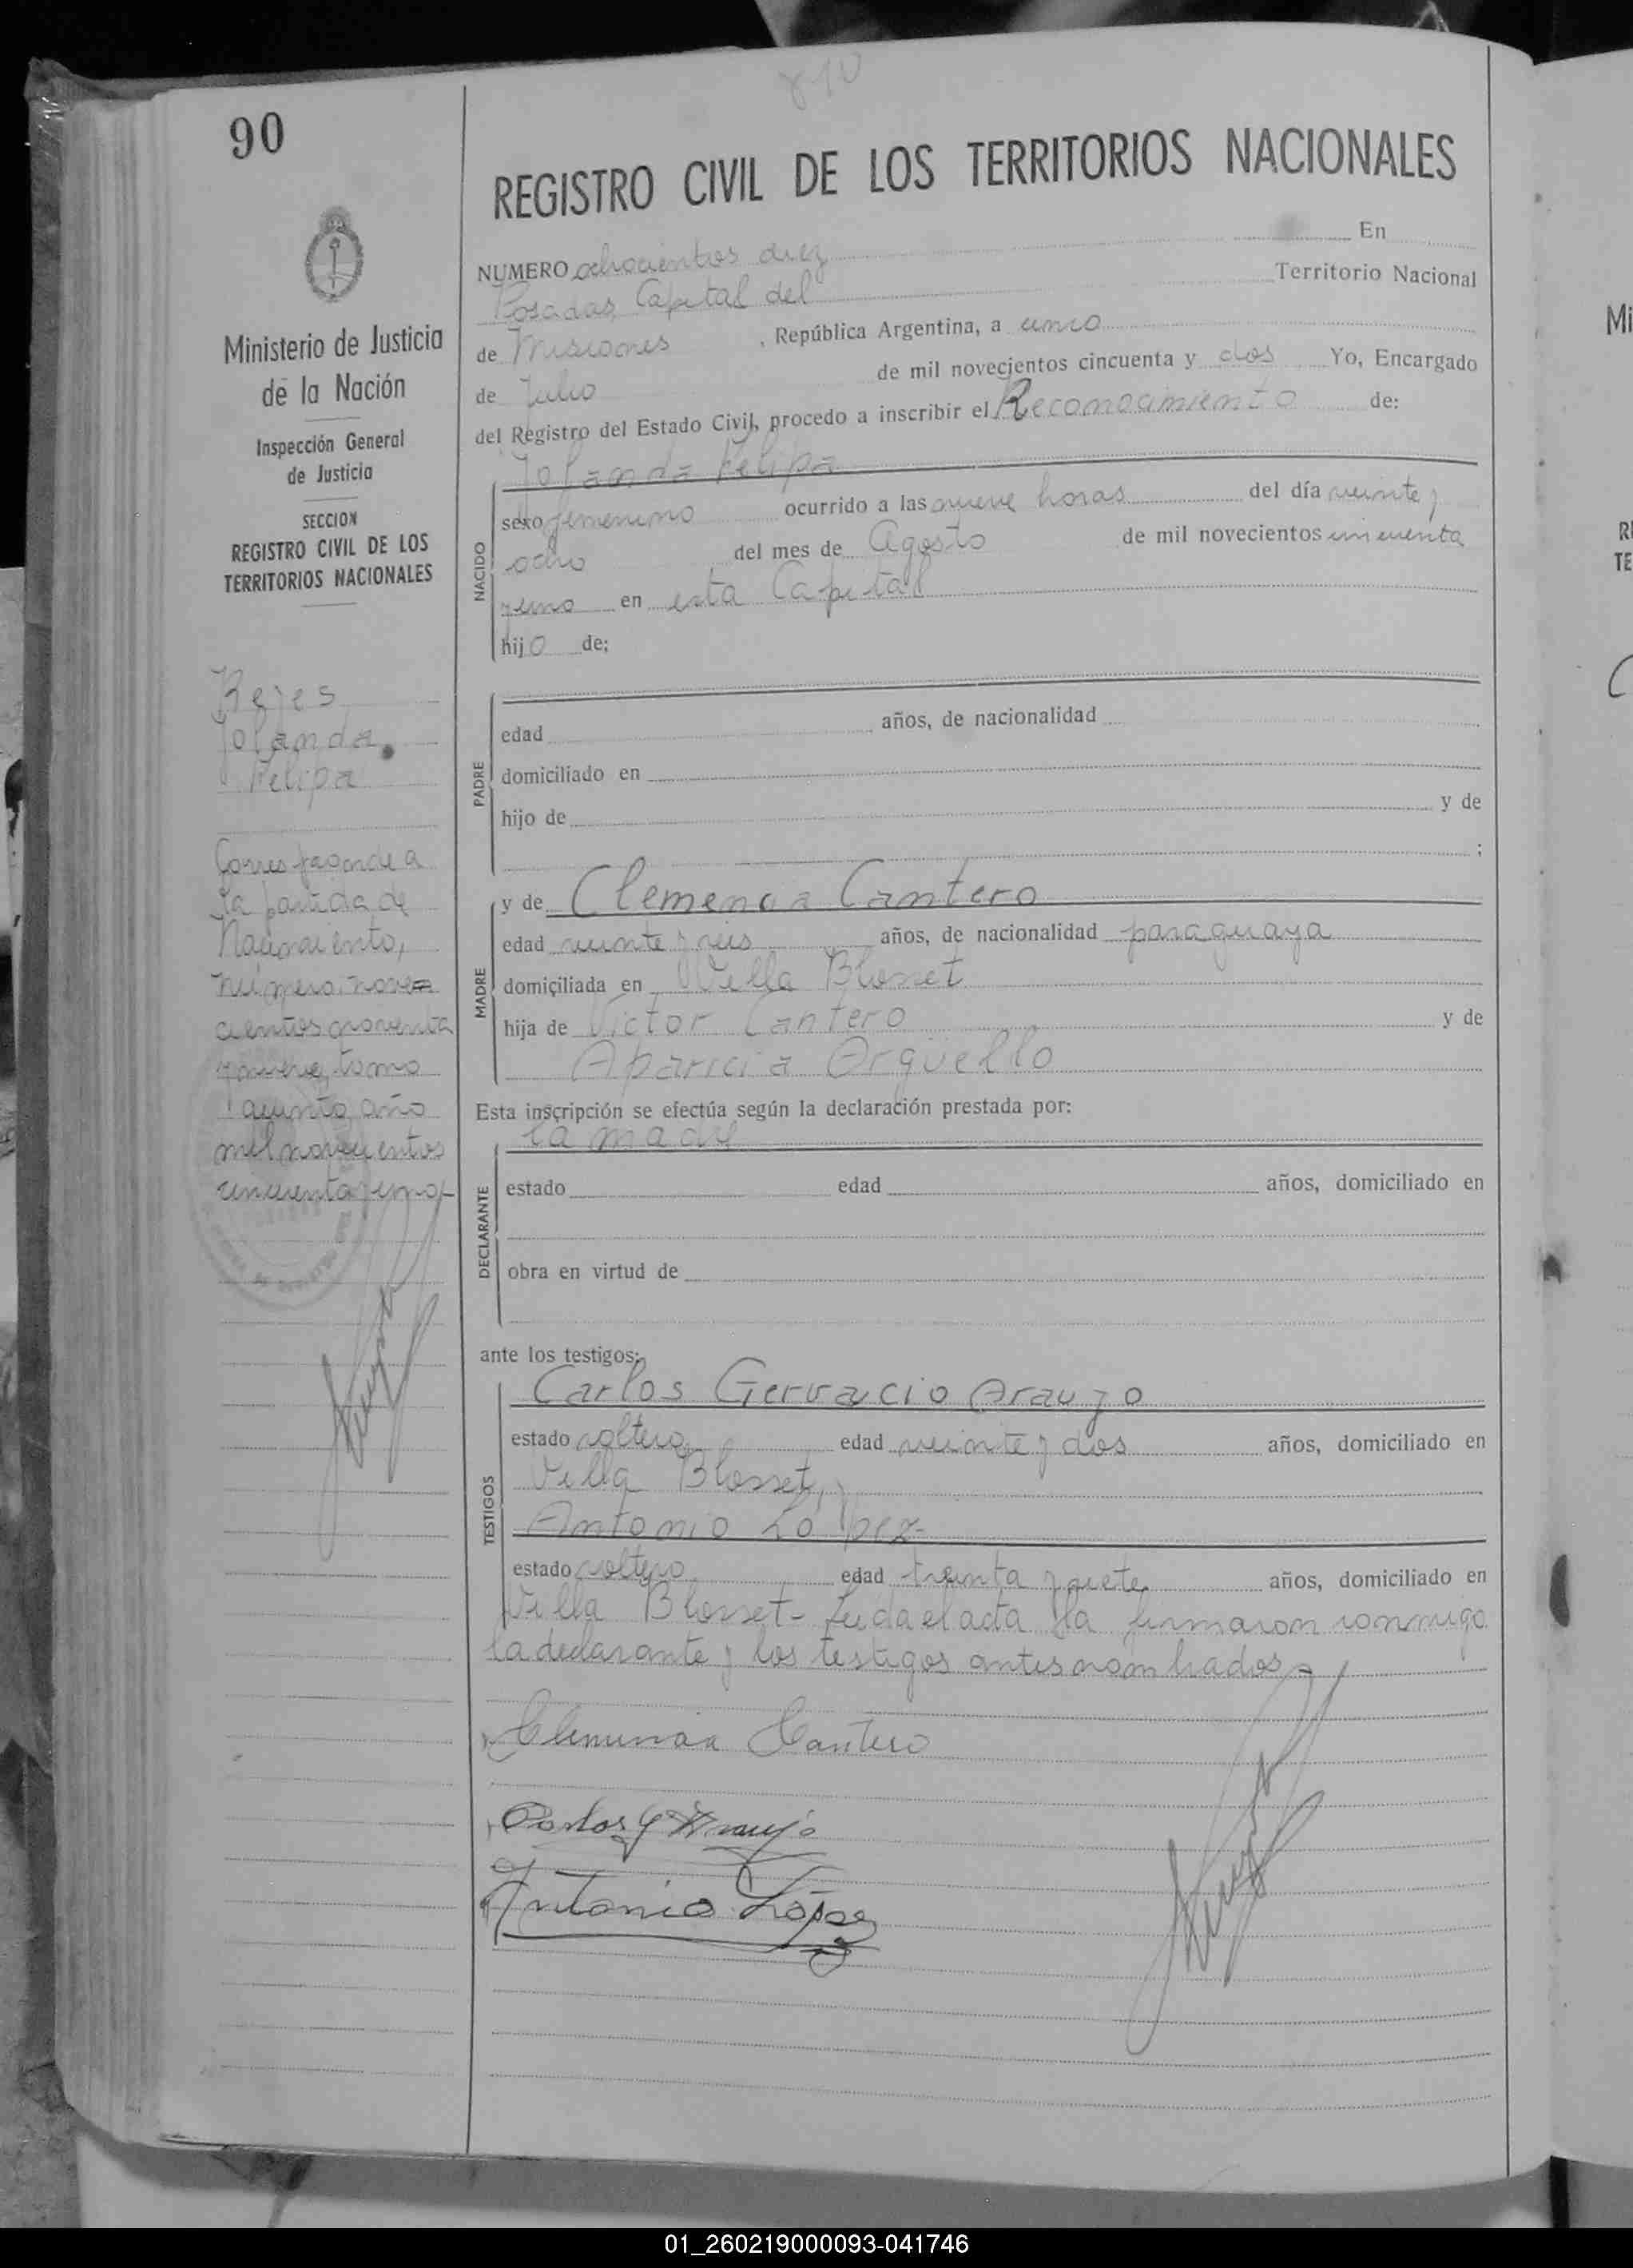 810
90
REGISTRO CIVIL DE LOS TERRITORIOS NACIONALES
NUMERO ochocientos diez En
Posadas, Capital del Territorio Nacional
de Misiones, República Argentina, a uno
de Julio de mil novecientos cincuenta y dos Yo, Encargado
del Registro del Estado Civil, procedo a inscribir el Reconocimiento de:
Yolanda Felipa
NACIDO
sexo femenino ocurrido a las nueve horas del día veinte y
ocho del mes de Agosto de mil novecientos cincuenta
y uno en esta Capital
hijo de;
PADRE
edad años, de nacionalidad
domiciliado en
hijo de y de
;
MADRE
y de Clemencia Cantero
edad veinte y seis años, de nacionalidad paraguaya
domiciliada en Villa Blosset
hija de Victor Cantero y de
Aparicia Orguello
Esta inscripción se efectúa según la declaración prestada por:
la madre
DECLARANTE
estado edad años, domiciliado en
obra en virtud de
ante los testigos:
TESTIGOS
Carlos Gervacio Araujo
estado soltero edad veinte y dos años, domiciliado en
Villa Blosset, y
Antonio Lopez-
estado soltero edad treinta y siete años, domiciliado en
Villa Blosset- Leida el acta la firmaron conmigo
la declarante y los testigos antes nombrados-
Clemencia Cantero
Carlos G Araujo
Antonio López
Ministerio de Justicia
de la Nación
Inspección General
de Justicia
SECCION
REGISTRO CIVIL DE LOS
TERRITORIOS NACIONALES
Reyes
Yolanda
Felipa
Corresponde a
la partida de
Nacimiento,
número nove
cientos noventa
y nueve, tomo
año
mil novecientos
cincuenta y uno-
Mi
RE
TE
01_260219000093-041746